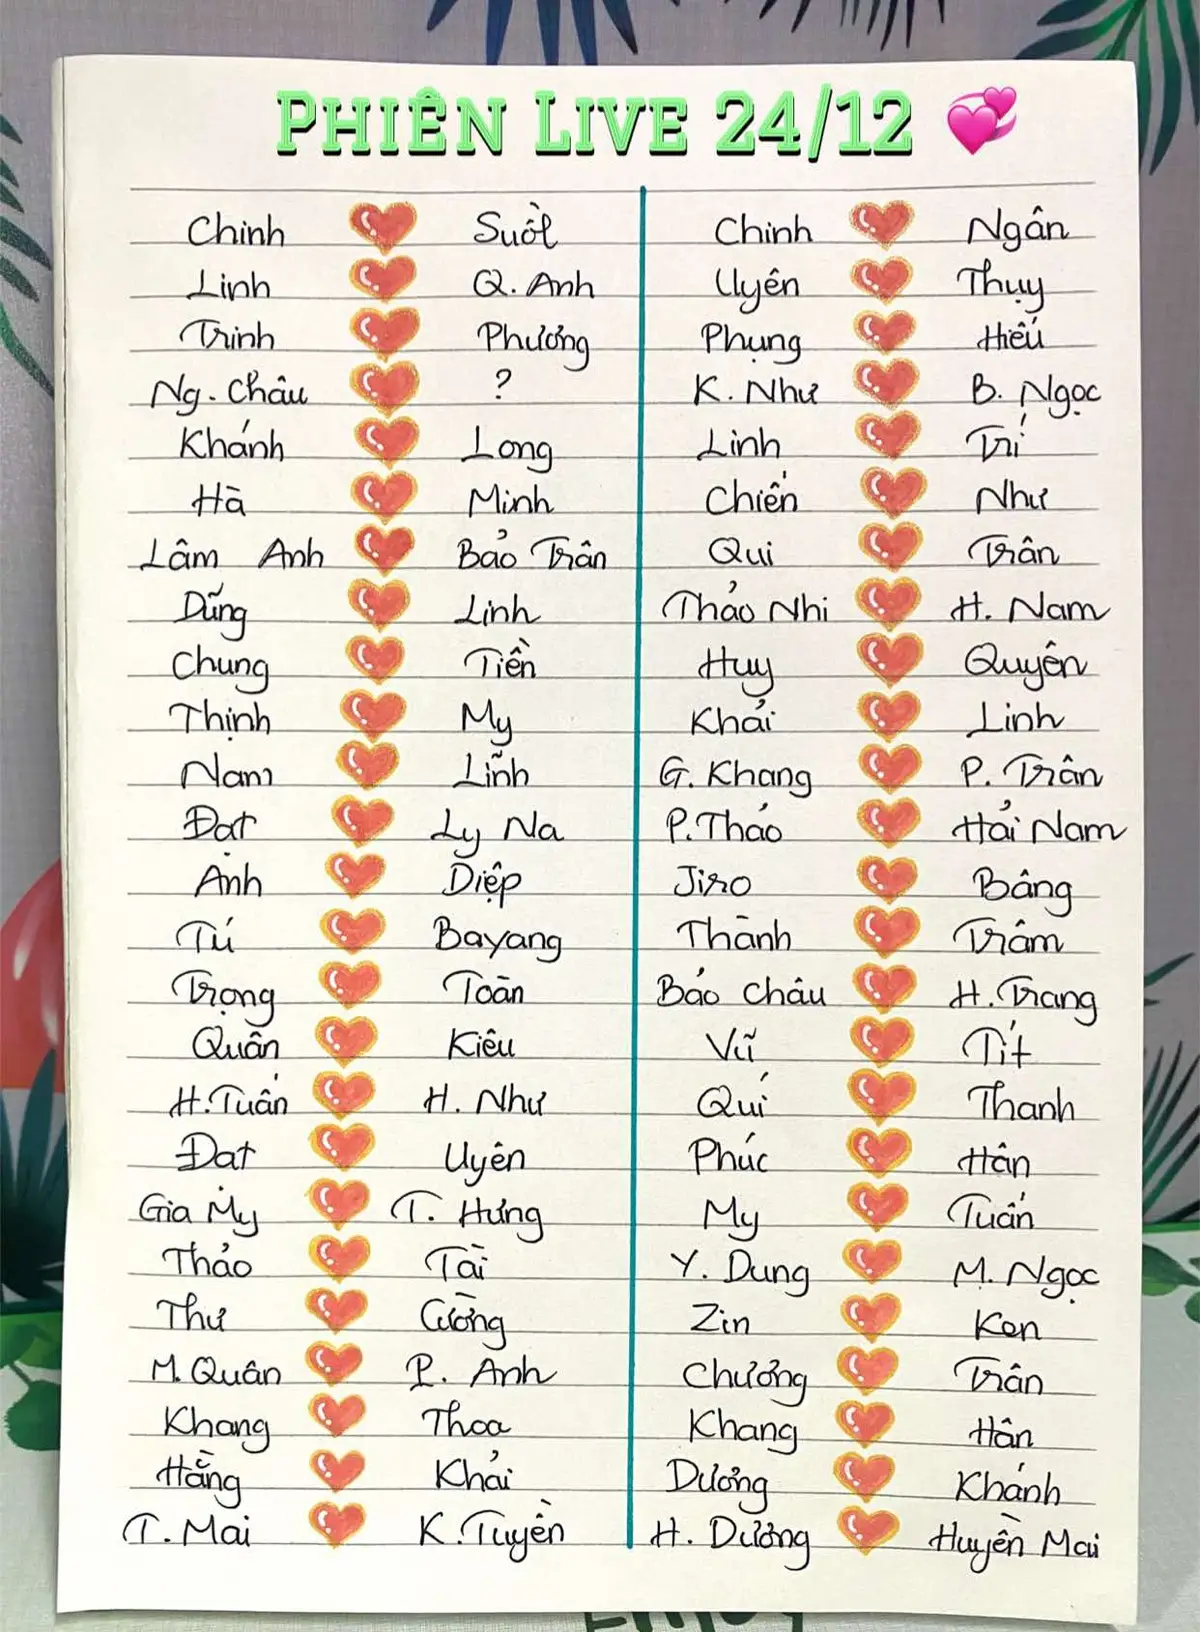 PHIÊN LIVE 24/12
Chinh Suốt
Linh Q. Anh
Trinh Phương
Ng. Châu ?
Khánh Long
Hà Minh
Lâm Anh Bảo Trân
Dũng Linh
Chung Tiền
Thịnh My
Nam Lĩnh
Đạt Ly Na
Ánh Diệp
Tú Bayang
Trọng Toàn
Quân Kiêu
H. Tuấn H. Như
Đạt Uyên
Gia Mỹ T. Hưng
Thảo Tài
Thư Cường
M. Quân P. Anh
Khang Thoa
Hằng Khải
T. Mai K. Tuyền
Chinh Ngân
Uyên Thụy
Phụng Hiếu
K. Như B. Ngọc
Linh Trí
Chiến Như
Qui Trân
Thảo Nhi H. Nam
Huy Quyên
Khải Linh
G. Khang P. Trân
P. Thảo Hải Nam
Jiro Băng
Thành Trâm
Bảo Châu H. Trang
Vũ Tít
Quí Thanh
Phúc Hân
My Tuấn
Y. Dung M. Ngọc
Zin Ken
Chương Trân
Khang Hân
Dương Khánh
H. Dương Huyền Mai